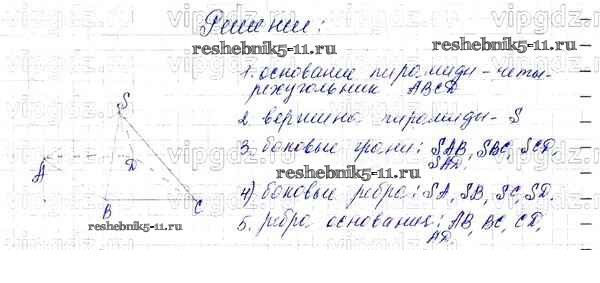 Решение:
1. основание пирамиды - четы-
рехугольник ABCD
2 вершина пирамиды - S
3. боковые грани: SAB, SBC, SCD,
SAD.
4) боковые ребра: SA, SB, SC, SD.
5. ребра основания: AB, BC, CD,
AD.
S
A
D
B
C
reshebnik5-11.ru
reshebnik5-11.ru
reshebnik5-11.ru
reshebnik5-11.ru
vipgdz.ru
vipgdz.ru
vipgdz.ru
vipgdz.ru